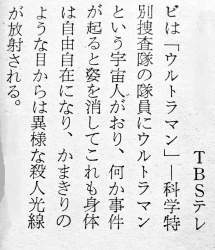 TBSテレ
ビは「ウルトラマン」―科学特
別捜査隊の隊員にウルトラマン
という宇宙人がおり、何か事件
が起ると姿を消してこれも身体
は自由自在になり、かまきりの
ような目からは異様な殺人光線
が放射される。